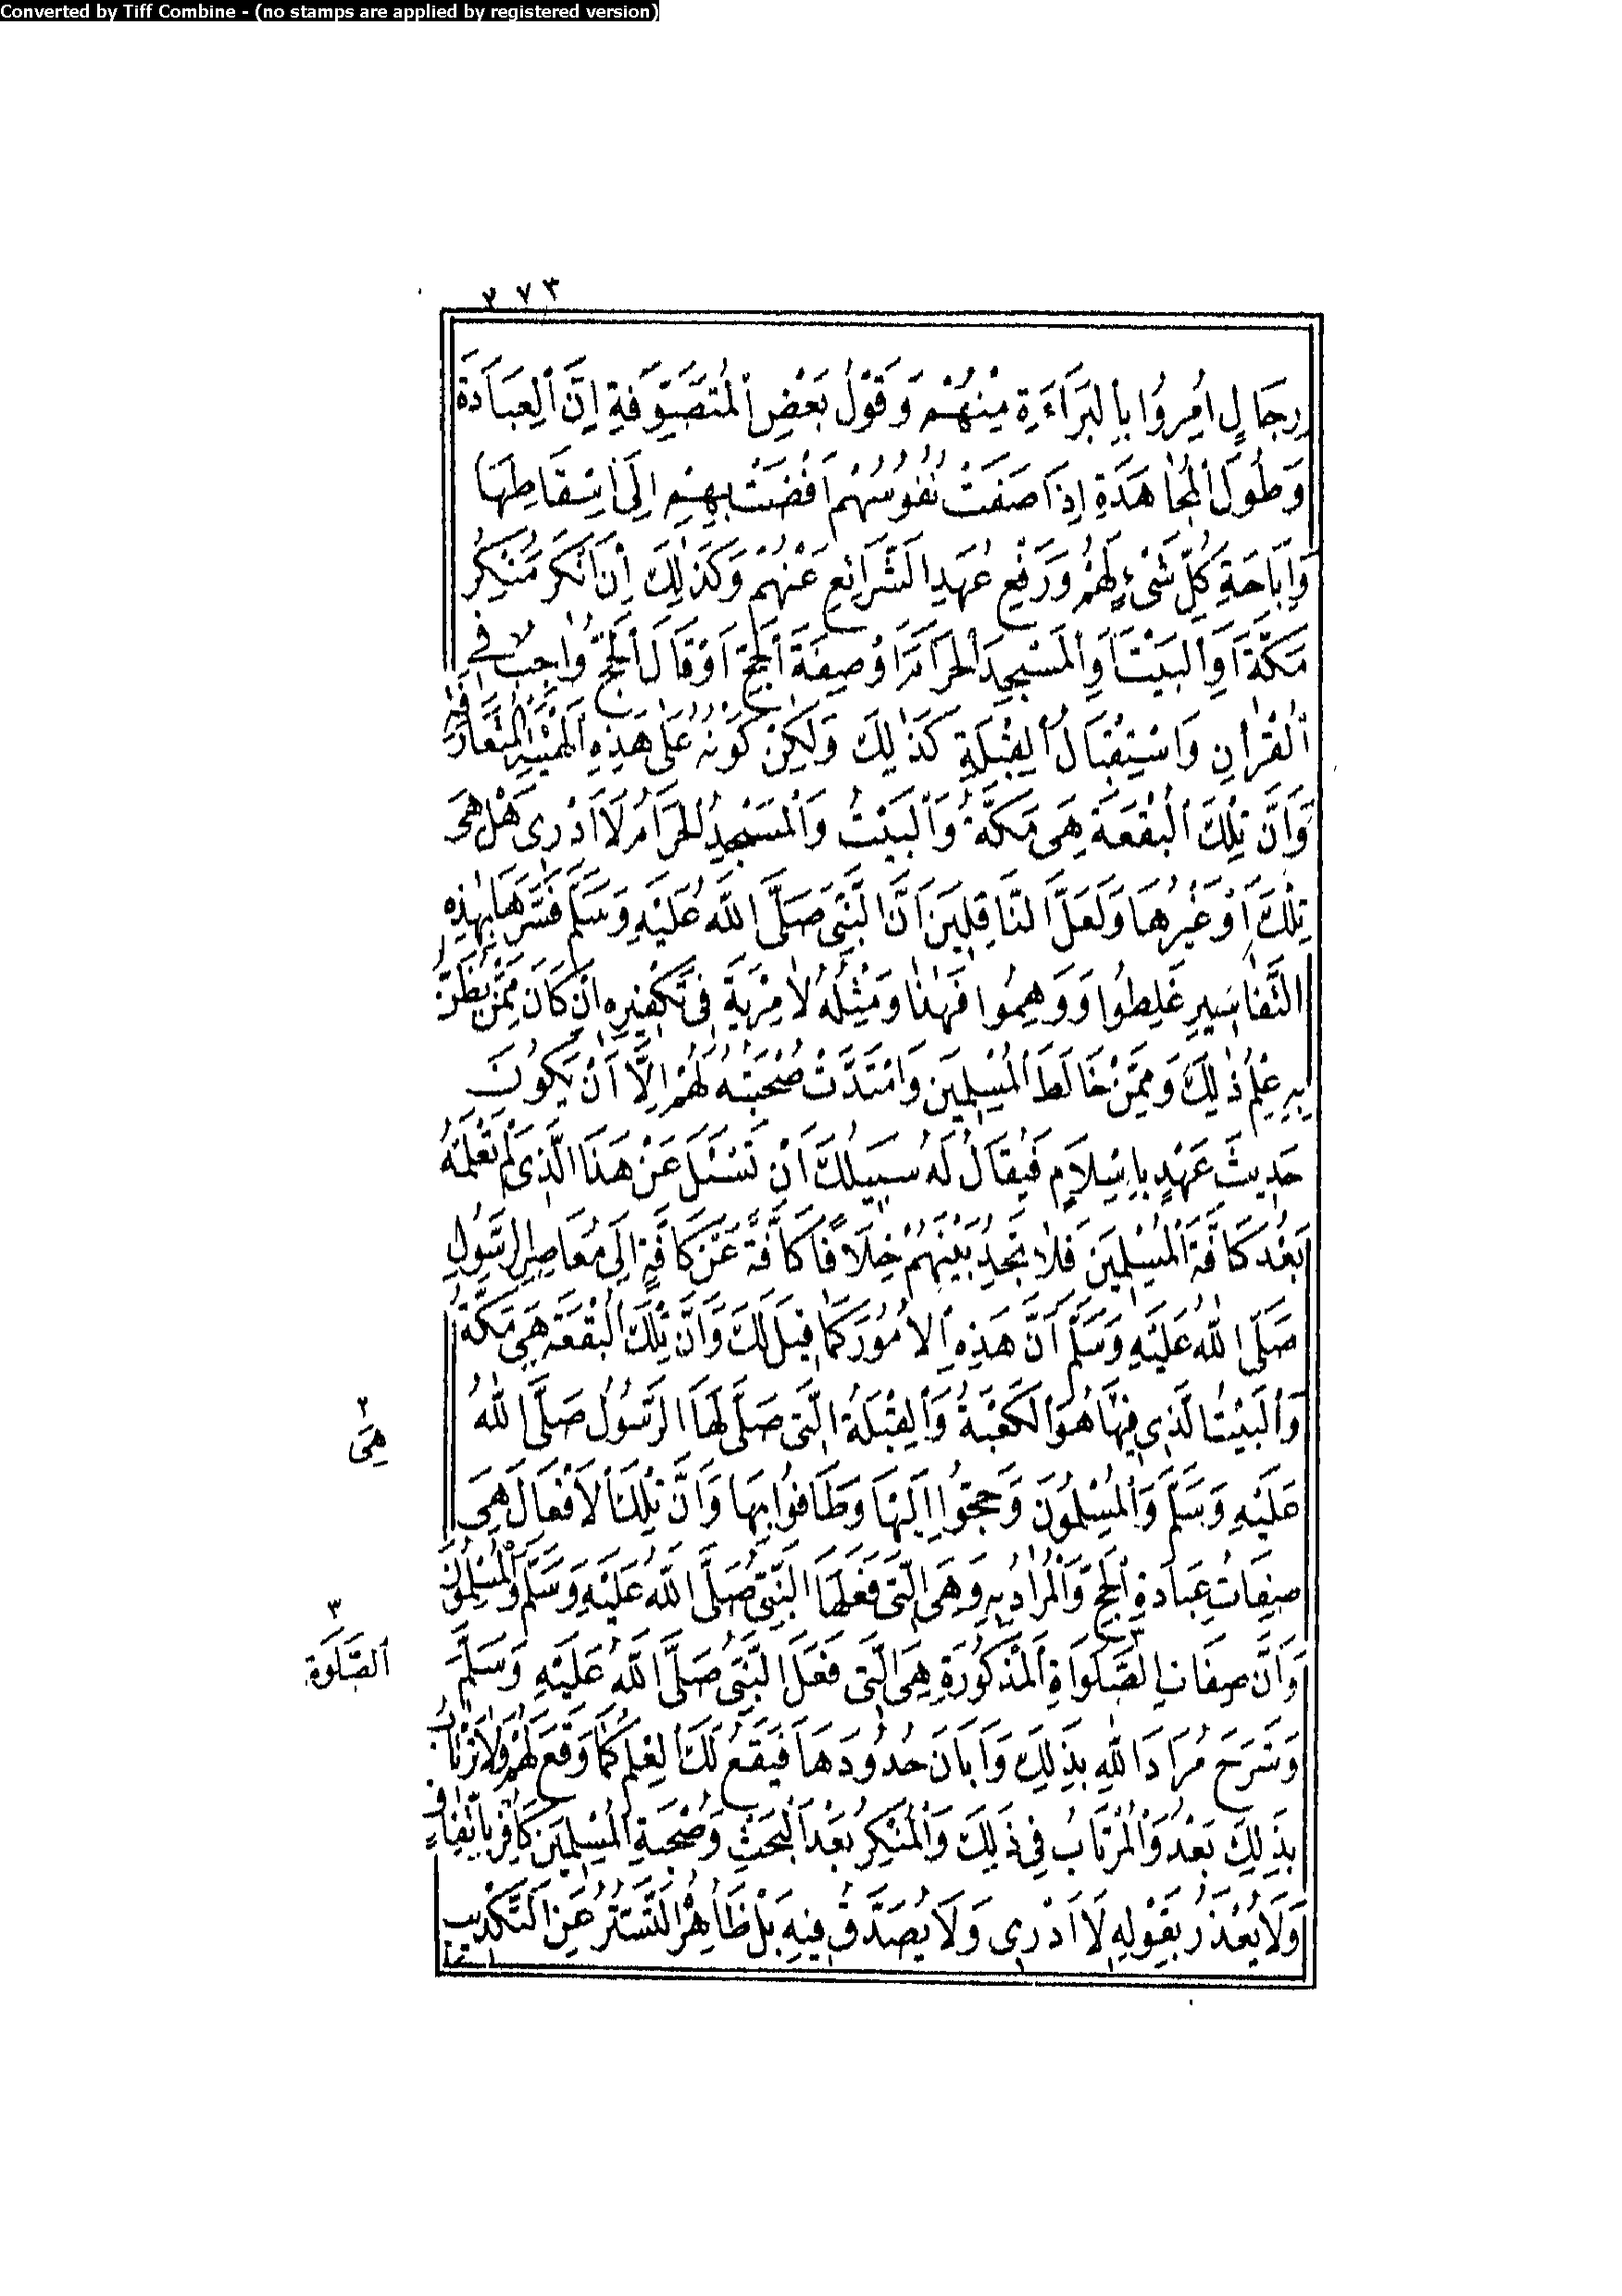 Converted by Tiff Combine - (no stamps are applied by registered version)
٣٧٣
رِجَالٍ اُمِرُوا بِالْبَرَاءَةِ مِنْهُمْ وَقَوْلُ بَعْضِ الْمُتَصَوِّفَةِ اِنَّ الْعِبَادَةَ
وَطُولَ الْمُجَاهَدَةِ اِذَا صَفَتْ نُفُوسُهُمْ اَفْضَتْ بِهِمْ اِلَى اِسْقَاطِهَا
وَاِبَاحَةِ كُلِّ شَىْءٍ لَهُمْ وَرَفْعِ عُهَدِ الشَّرَائِعِ عَنْهُمْ وَكَذٰلِكَ اِنْ اَنْكَرَ مُنْكِرٌ
مَكَّةَ اَوِ الْبَيْتَ اَوِ الْمَسْجِدَ الْحَرَامَ اَوْ صِفَةَ الْحَجِّ اَوْ قَالَ الْحَجُّ وَاجِبٌ فِى
الْقُرْاٰنِ وَاسْتِقْبَالُ الْقِبْلَةِ كَذٰلِكَ وَلٰكِنْ كَوْنُهُ عَلَى هَذِهِ الْهَيْئَةِ الْمُتَعَارَفَةِ
وَاَنَّ تِلْكَ الْبُقْعَةَ هِىَ مَكَّةُ وَالْبَيْتُ وَالْمَسْجِدُ الْحَرَامُ لَا اَدْرِى هَلْ هِىَ
تِلْكَ اَوْ غَيْرُهَا وَلَعَلَّ النَّاقِلِينَ اَنَّ النَّبِىَّ صَلَّى اللّٰهُ عَلَيْهِ وَسَلَّمَ فَسَّرَهَا بِهٰذِهِ
التَّفَاسِيرِ غَلِطُوا وَوَهِمُوا فَهٰذَا وَمِثْلُهُ لَا مِرْيَةَ فِى تَكْفِيرِهِ اِنْ كَانَ مِمَّنْ يُظَنُّ
بِهِ عِلْمُ ذٰلِكَ وَمِمَّنْ خَالَطَ الْمُسْلِمِينَ وَامْتَدَّتْ صُحْبَتُهُ لَهُمْ اِلَّا اَنْ يَكُونَ
حَدِيثَ عَهْدٍ بِاِسْلَامٍ فَيُقَالُ لَهُ سَبِيلُكَ اَنْ تَسْئَلَ عَنْ هَذَا الَّذِى لَمْ تَعْلَمْهُ
بَعْدُ كَافَّةَ الْمُسْلِمِينَ فَلَا تَجِدُ بَيْنَهُمْ خِلَافًا كَافَّةً عَنْ كَافَّةٍ اِلَى مُعَاصِرِ الرَّسُولِ
صَلَّى اللّٰهُ عَلَيْهِ وَسَلَّمَ اَنَّ هَذِهِ الْاُمُورَ كَمَا قِيلَ لَكَ وَاَنَّ تِلْكَ الْبُقْعَةَ هِىَ مَكَّةُ
وَالْبَيْتُ الَّذِى فِيهَا هُوَ الْكَعْبَةُ وَالْقِبْلَةُ الَّتِى صَلَّى لَهَا الرَّسُولُ صَلَّى اللّٰهُ
٢
هِىَ
عَلَيْهِ وَسَلَّمَ وَالْمُسْلِمُونَ وَحَجُّوا اِلَيْهَا وَطَافُوا بِهَا وَاَنَّ تِلْكَ الْاَفْعَالَ هِىَ
صِفَاتُ عِبَادَةِ الْحَجِّ وَالْمُرَادُ بِهِ وَهِىَ الَّتِى فَعَلَهَا النَّبِىُّ صَلَّى اللّٰهُ عَلَيْهِ وَسَلَّمَ وَالْمُسْلِمُونَ
٣
الصَّلٰوةِ
وَاَنَّ صِفَاتِ الصَّلَوَاةِ الْمَذْكُورَةِ هِىَ الَّتِى فَعَلَ النَّبِىُّ صَلَّى اللّٰهُ عَلَيْهِ وَسَلَّمَ
وَشَرَحَ مُرَادَ اللّٰهِ بِذٰلِكَ وَاَبَانَ حُدُودَهَا فَيَقَعُ لَكَ الْعِلْمُ كَمَا وَقَعَ لَهُمْ وَلَا تَرْتَابُ
بِذٰلِكَ بَعْدُ وَالْمُرْتَابُ فِى ذٰلِكَ وَالْمُنْكِرُ بَعْدَ الْبَحْثِ وَصُحْبَةِ الْمُسْلِمِينَ كَافِرٌ بِاتِّفَاقٍ
وَلَا يُعْذَرُ بِقَوْلِهِ لَا اَدْرِى وَلَا يُصَدَّقُ فِيهِ بَلْ ظَاهِرُهُ التَّسَتُّرُ عَنِ التَّكْذِيبِ